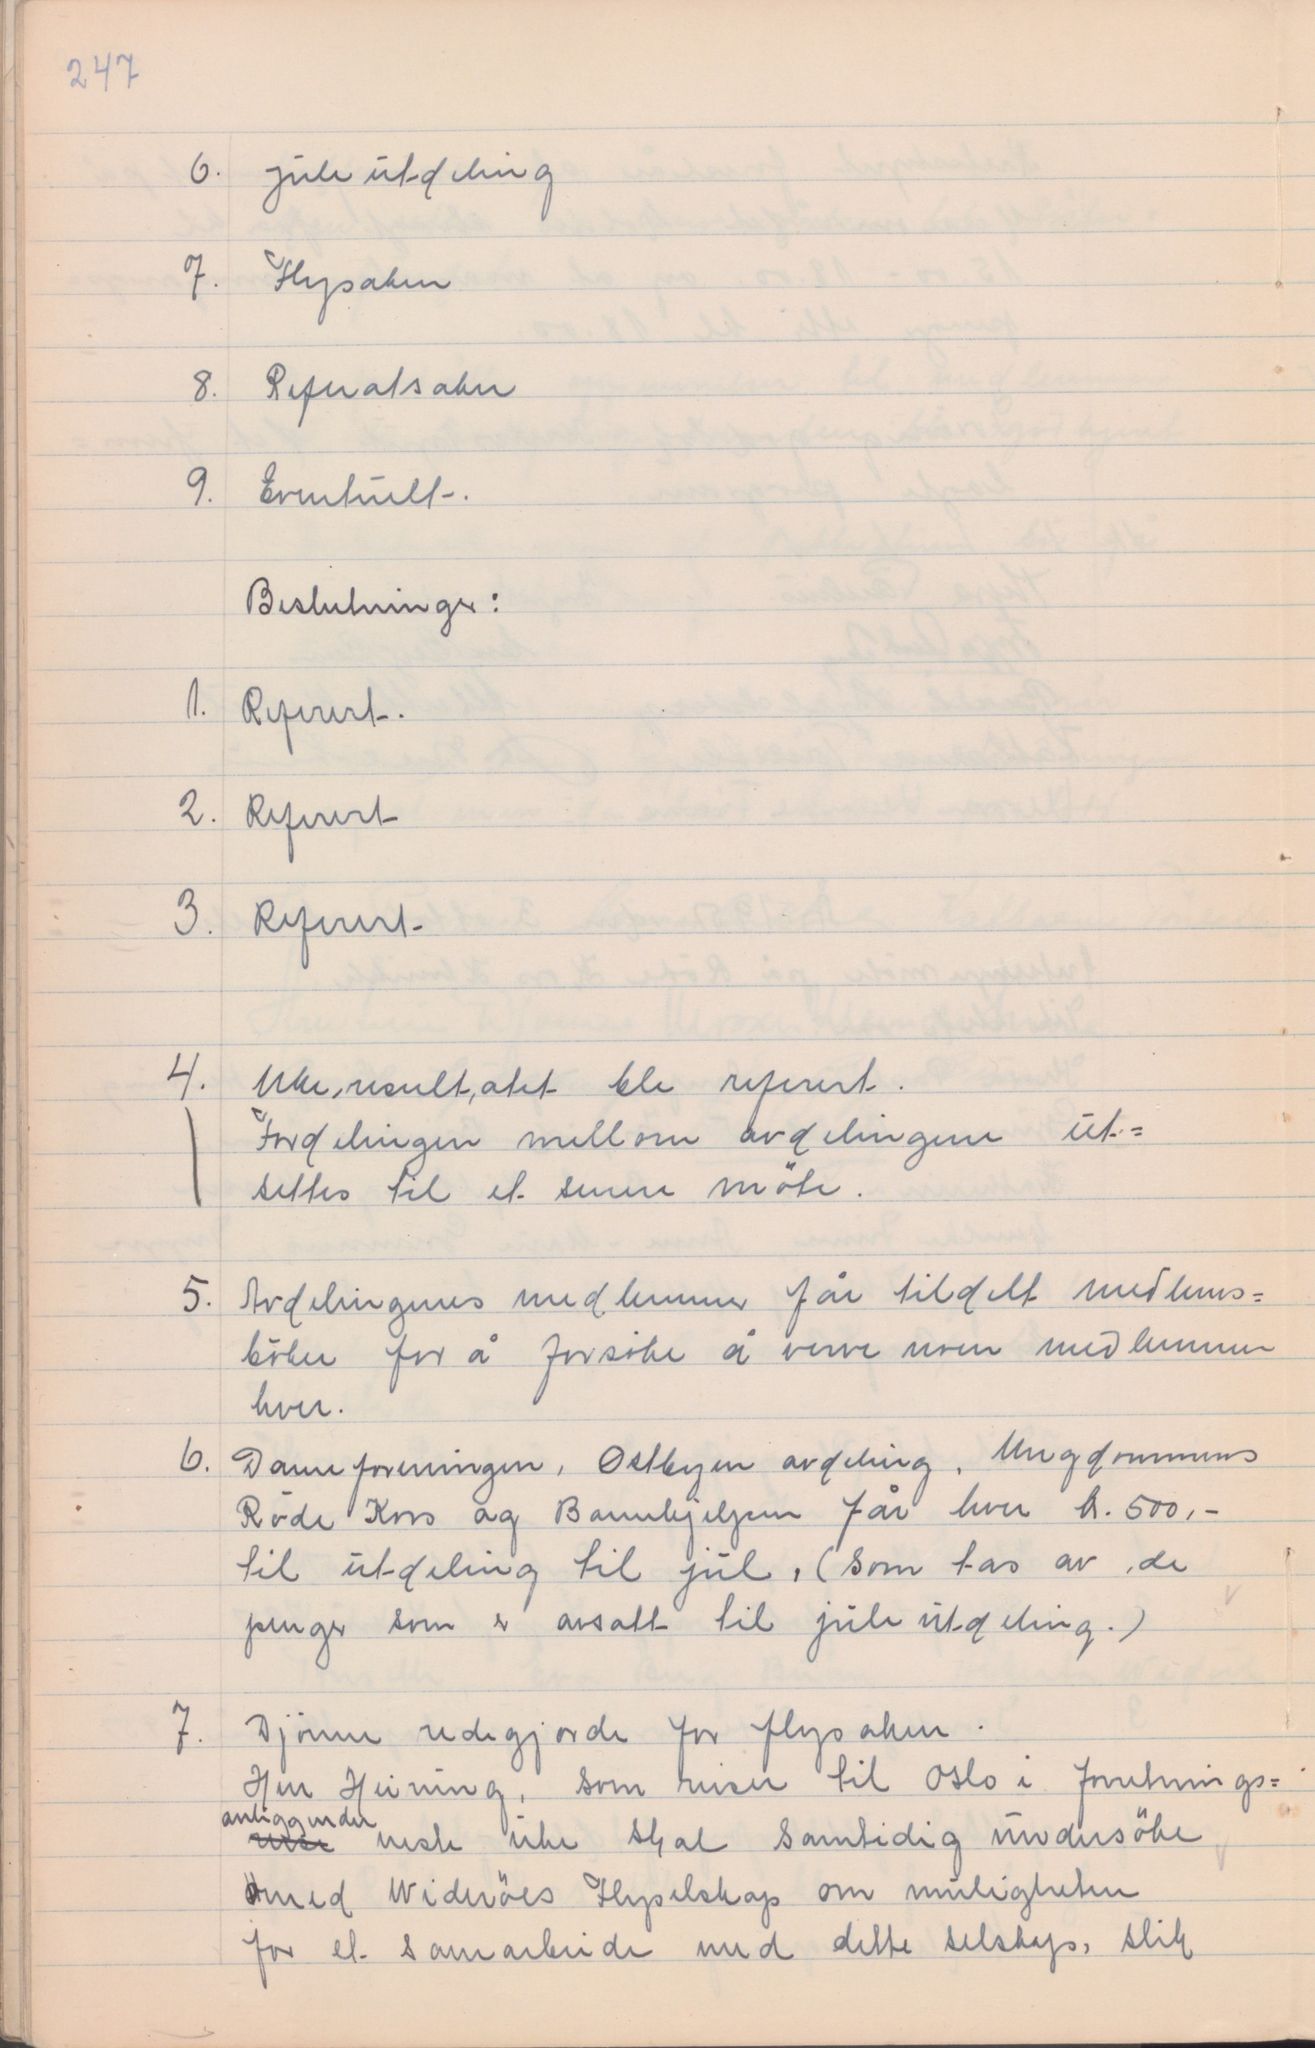 247
6. juleutdeling
7. Flysaken
8. Referatsaker
9. Eventuelt.
Beslutninger:
1. Referert.
2. Referert
3. Referert
4. Uke,result,atet ble referert.
Fordelingen mellom avdelingene ut-=
settes til et senere möte.
5. Avdelingenes medlemmer får tildelt medlems=
böker for å forsöke å verve noen medlemmer
hver.
6. Dameforeningen, Östbyen avdeling, Ungdommens
Röde Kors og Barnehjelpen får hver kr. 500,-
til utdeling til jul, (som tas av de
penger som er avsatt til juleutdeling.)
7. Djönne redegjorde for flysaken.
Herr Heining, som reiser til Oslo i forretnings=
anliggender
reise neste uke skal samtidig undersöke
med Wideröes Flyselskap om muligheten
for et samarbeide med dette selskap, slik